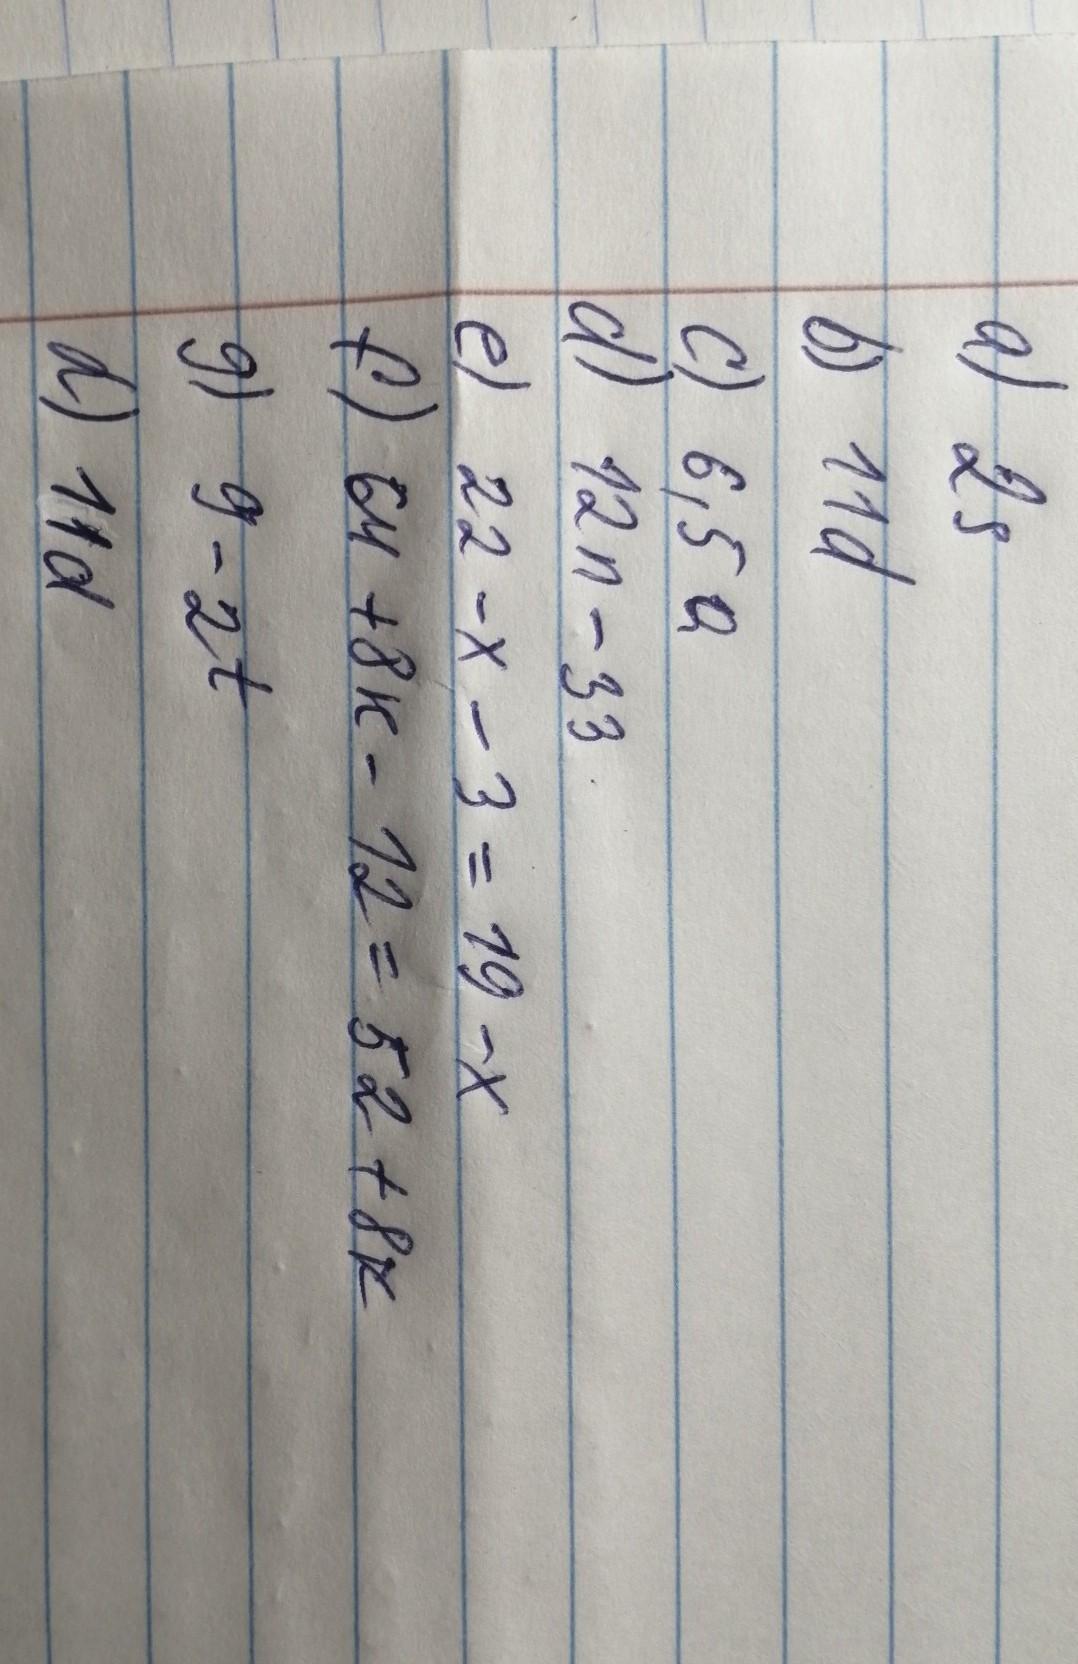 a) 2s
b) 11d
c) 6,5a
d) 12n - 33
e) 22 - x - 3 = 19 - x
f) 64 + 8k - 12 = 52 + 8k
g) 9 - 2t
h) 11d